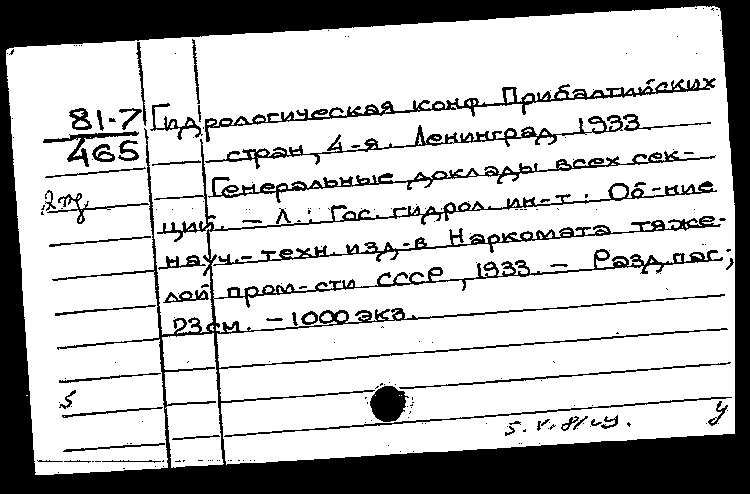 81-7
465
Гидрологическая конф. Прибалтийских
стран, 4-я. Ленинград, 1933.
Генеральные доклады всех сек-
ций. – Л.: Гос. гидрол. ин-т: Об-ние
науч.-техн. изд-в Наркомата тяже-
лой пром-сти СССР, 1933. – Разд. паг.;
23 см. – 1000 экз.
5
у